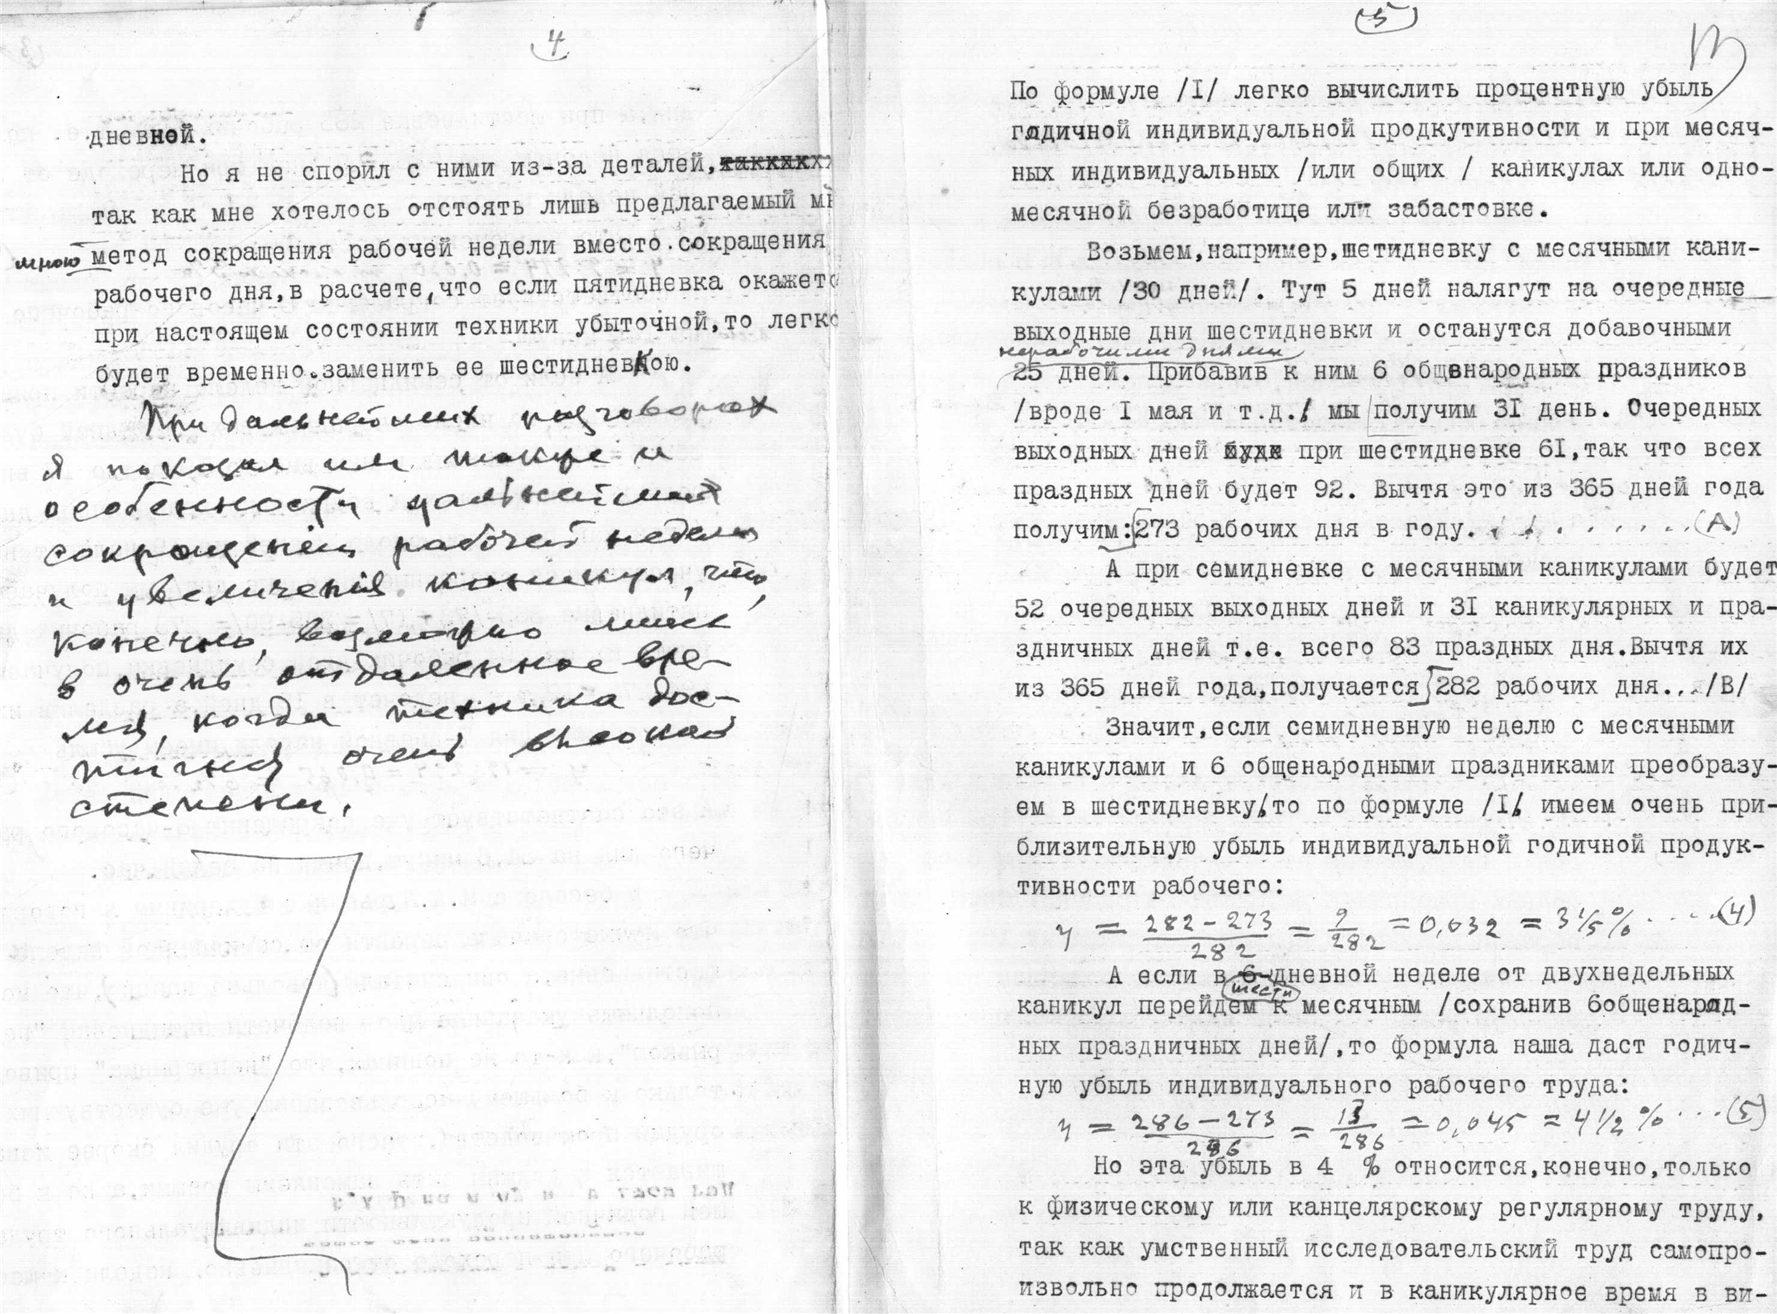 4
дневной.
Но я не спорил с ними из-за деталей,
так как мне хотелось отстоять лишь предлагаемый
мною метод сокращения рабочей недели вместо сокращения
рабочего дня, в расчете, что если пятидневка окажетс
при настоящем состоянии техники убыточной, то легко
будет временно заменить ее шестидневкою.
При дальнейших разговорах
я показал им также и
особенности дальнейших
сокращений рабочей недели
и увеличения каникул, что,
конечно, возможно лишь
в очень отдаленное вре-
мя, когда техника дос-
тигнет очень высокой
степени.
(5)
По формуле /I/ легко вычислить процентную убыль
годичной индивидуальной продкутивности и при месяч-
ных индивидуальных /или общих / каникулах или одно-
месячной безработице или забастовке.
Возьмем,например,шетидневку с месячными кани-
кулами /30 дней/. Тут 5 дней налягут на очередные
выходные дни шестидневки и останутся добавочными
нерабочими днями
25 дней. Прибавив к ним 6 общенародных праздников
/вроде I мая и т.д./ мы получим 3I день. Очередных
выходных дней при шестидневке 6I,так что всех
праздных дней будет 92. Вычтя это из 365 дней года
получим: 273 рабочих дня в году. . . . . . . . . (А)
А при семидневке с месячными каникулами будет
52 очередных выходных дней и 3I каникулярных и пра-
здничных дней т.е. всего 83 праздных дня.Вычтя их
из 365 дней года,получается 282 рабочих дня.../В/
Значит,если семидневную неделю с месячными
каникулами и 6 общенародными праздниками преобразу-
ем в шестидневку, то по формуле /I/ имеем очень при-
близительную убыль индивидуальной годичной продук-
тивности рабочего:
y = (282 – 273)/282 = 9/282 = 0,032 = 3 1/5 % . . . . (4)
А если в шести дневной неделе от двухнедельных
каникул перейдем к месячным /сохранив 6общенарод-
ных праздничных дней/,то формула наша даст годич-
ную убыль индивидуального рабочего труда:
y = (286 – 273)/286 = 13/286 = 0,045 = 4 1/2 % . . . (5)
Но эта убыль в 4 % относится,конечно,только
к физическому или канцелярскому регулярному труду,
так как умственный исследовательский труд самопро-
извольно продолжается и в каникулярное время в ви-